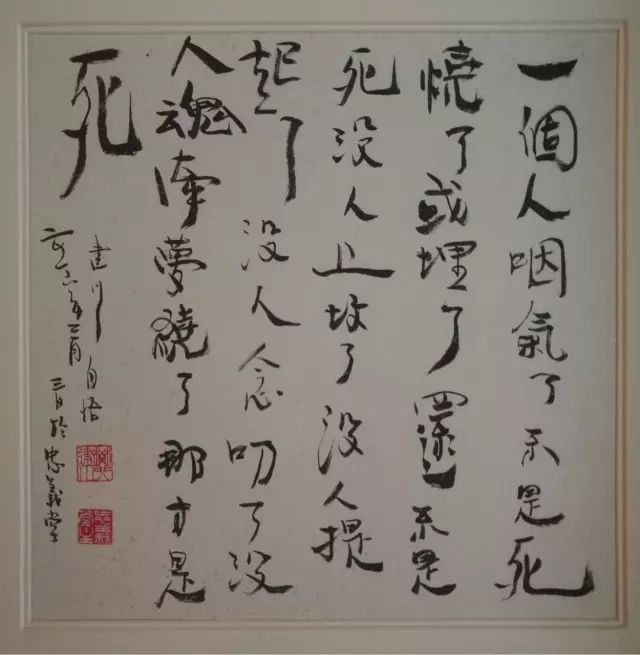 一個人咽氣了不是死
燒了或埋了還不是
死没人上坟了没人提
起了没人念叨了没
人魂牽夢繞了那才是
死
建川自悟
年二月三日於忠義堂